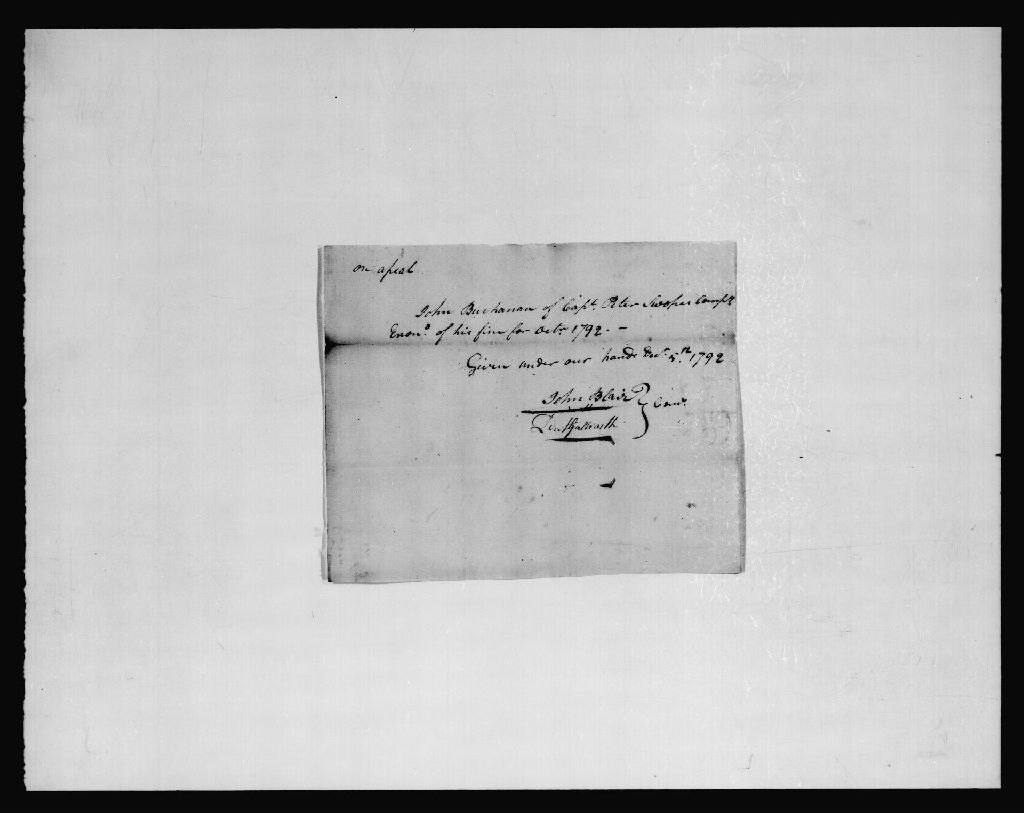 on apeal
John Buchanan of Capt. Peter Swopes Compy
Exond. of his fine for Octr. 1792. –
Given under our hands Decr. 5th. 1792
John Blair } Comr.